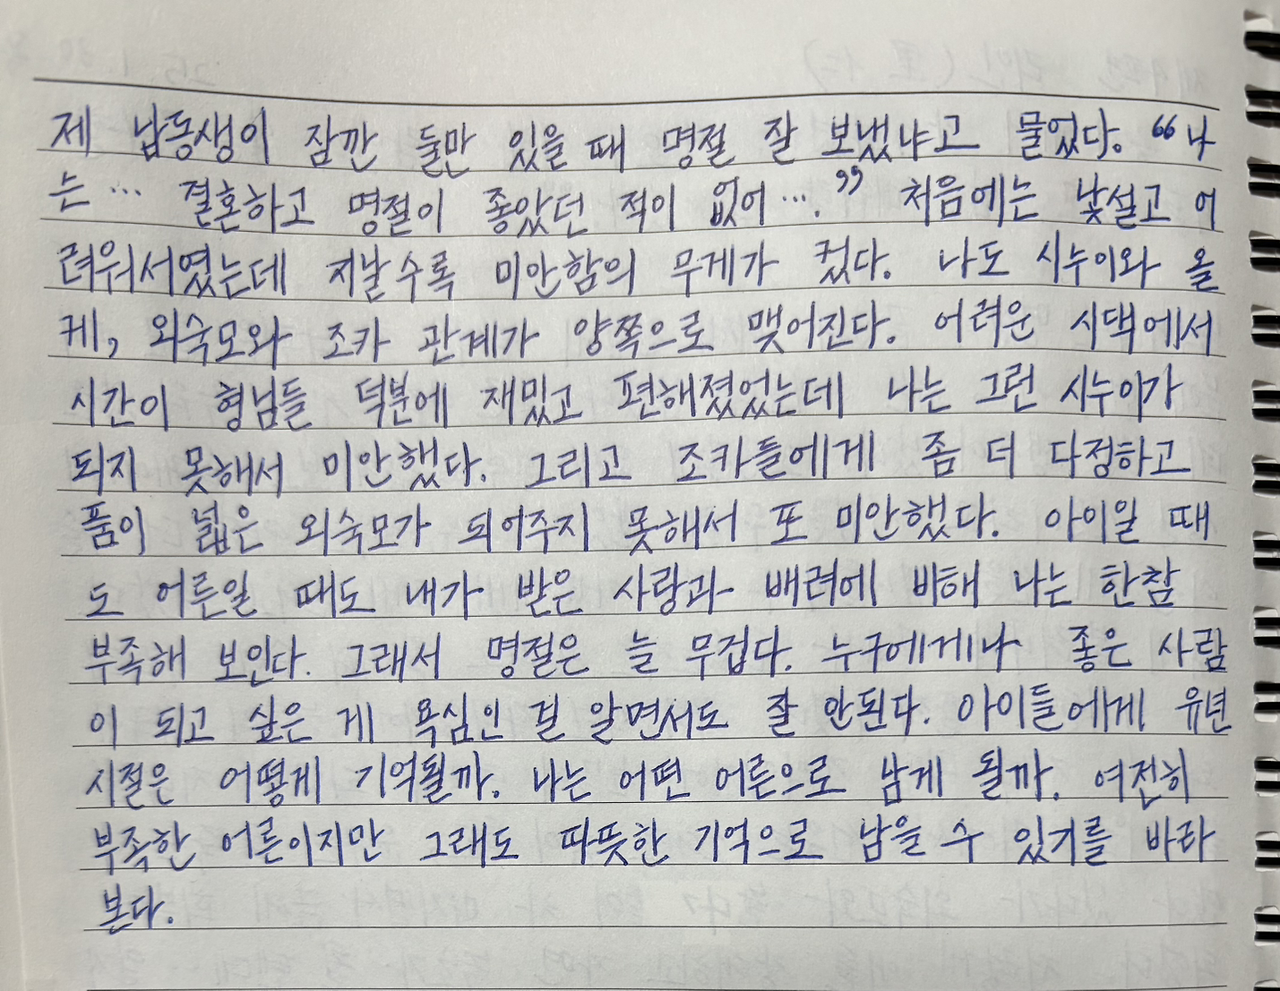 제 남동생이 잠깐 둘만 있을 때 명절 잘 보냈냐고 물었다. “나
는… 결혼하고 명절이 좋았던 적이 없어….” 처음에는 낯설고 어
려워서였는데 지날수록 미안함의 무게가 컸다. 나도 시누이와 올
케, 외숙모와 조카 관계가 양쪽으로 맺어진다. 어려운 시댁에서
시간이 형님들 덕분에 재밌고 편해졌었는데 나는 그런 시누이가
되지 못해서 미안했다. 그리고 조카들에게 좀 더 다정하고
품이 넓은 외숙모가 되어주지 못해서 또 미안했다. 아이일 때
도 어른일 때도 내가 받은 사랑과 배려에 비해 나는 한참
부족해 보인다. 그래서 명절은 늘 무겁다. 누구에게나 좋은 사람
이 되고 싶은 게 욕심인 걸 알면서도 잘 안된다. 아이들에게 유년
시절은 어떻게 기억될까. 나는 어떤 어른으로 남게 될까. 여전히
부족한 어른이지만 그래도 따뜻한 기억으로 남을 수 있기를 바라
본다.